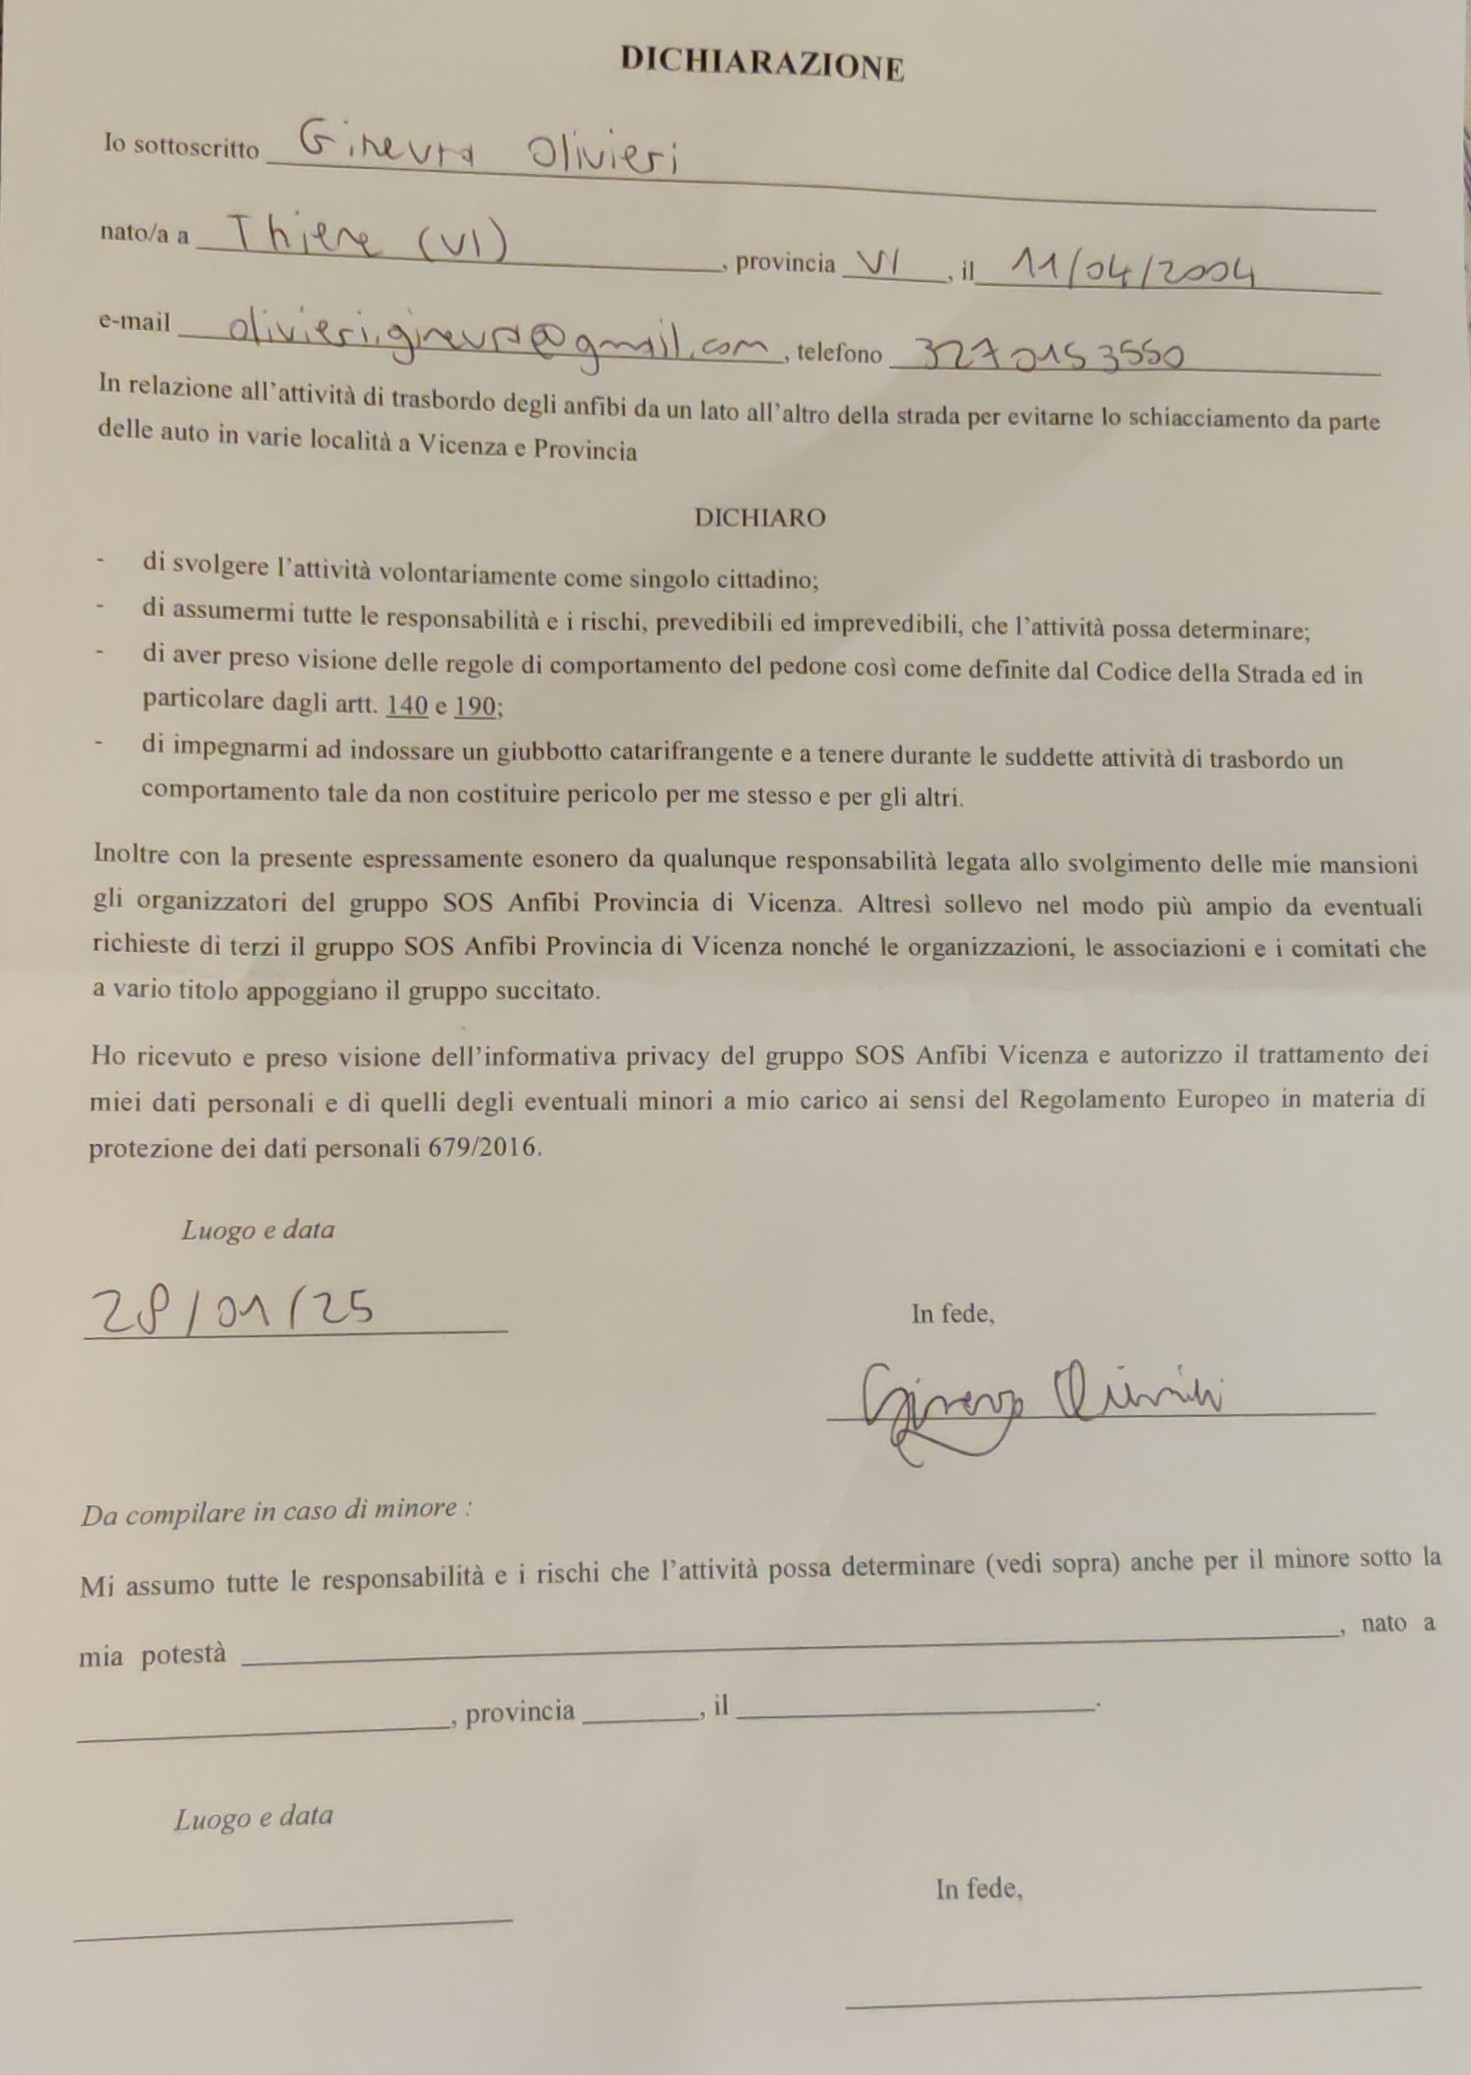 DICHIARAZIONE
Io sottoscritto Ginevra Olivieri
nato/a a Thiene (VI), provincia VI, il 11/04/2004
e-mail olivieri.ginevra@gmail.com, telefono 3270153550
In relazione all'attività di trasbordo degli anfibi da un lato all'altro della strada per evitarne lo schiacciamento da parte
delle auto in varie località a Vicenza e Provincia
DICHIARO
- di svolgere l'attività volontariamente come singolo cittadino;
- di assumermi tutte le responsabilità e i rischi, prevedibili ed imprevedibili, che l'attività possa determinare;
- di aver preso visione delle regole di comportamento del pedone così come definite dal Codice della Strada ed in
particolare dagli artt. 140 e 190;
- di impegnarmi ad indossare un giubbotto catarifrangente e a tenere durante le suddette attività di trasbordo un
comportamento tale da non costituire pericolo per me stesso e per gli altri.
Inoltre con la presente espressamente esonero da qualunque responsabilità legata allo svolgimento delle mie mansioni
gli organizzatori del gruppo SOS Anfibi Provincia di Vicenza. Altresì sollevo nel modo più ampio da eventuali
richieste di terzi il gruppo SOS Anfibi Provincia di Vicenza nonché le organizzazioni, le associazioni e i comitati che
a vario titolo appoggiano il gruppo succitato.
Ho ricevuto e preso visione dell'informativa privacy del gruppo SOS Anfibi Vicenza e autorizzo il trattamento dei
miei dati personali e di quelli degli eventuali minori a mio carico ai sensi del Regolamento Europeo in materia di
protezione dei dati personali 679/2016.
Luogo e data
28/01/25
In fede,
Ginevra Olivieri
Da compilare in caso di minore :
Mi assumo tutte le responsabilità e i rischi che l'attività possa determinare (vedi sopra) anche per il minore sotto la
mia potestà , nato a
, provincia , il .
Luogo e data
In fede,